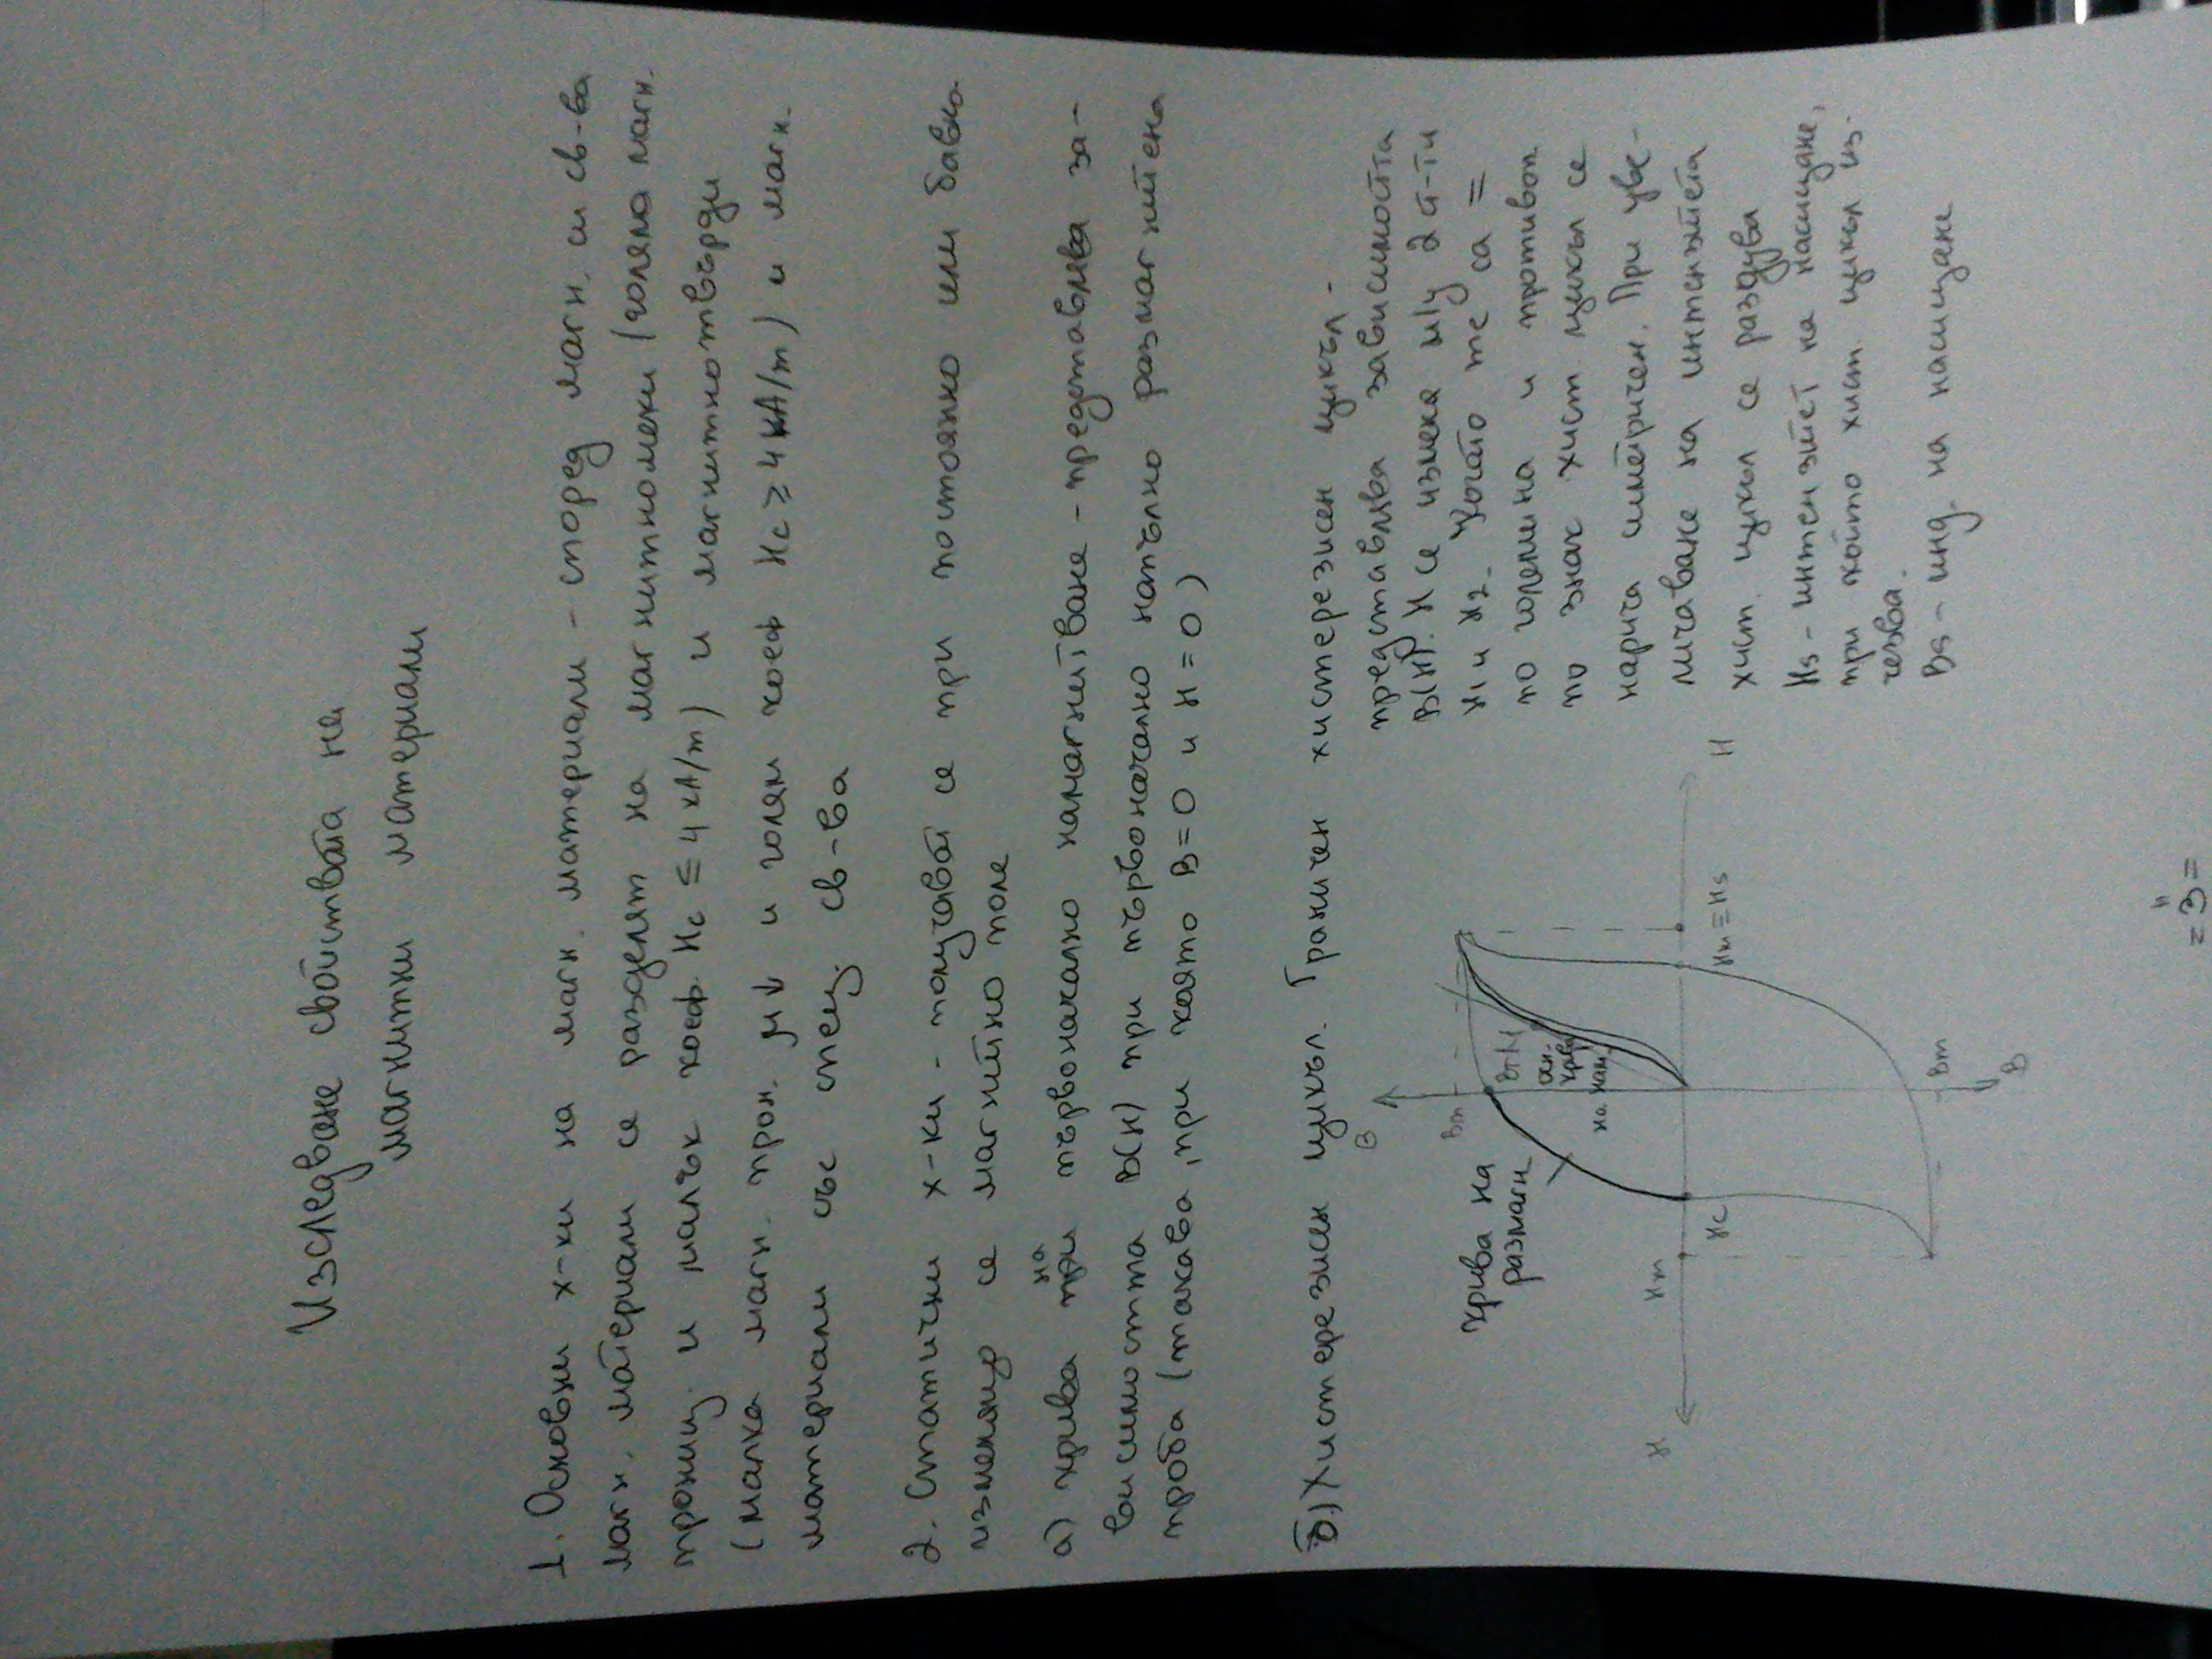 Изследване свойствата на
магнитни материали
1. Основни х-ки на магн. материали - според магн. си св-ва
магн. материали се разделят на магнитномеки (голяма магн.
прониц. и малък коеф. Hc ≤ 4 кА/m) и магнитнотвърди
(малка магн. прон. μ↓ и голям коеф Hc ≥ 4 кА/m) и магн.
материали със спец. св-ва
2. Статични х-ки - получават се при постоянно или бавно
изменящо се магнитно поле
а) крива на първоначално намагнитване - представлява за-
висимостта B(H) при първоначално напълно размагнитена
проба (такава, при която B=0 и H=0)
б) Хистерезисен цикъл. Граничен хистерезисен цикъл -
представлява зависимостта
B(H). H се изменя м/у 2 ст-ти
H1 и H2. Когато те са =
по големина и противоп
по знак хист. цикъл се
нарича симетричен. При уве-
личаване на интензитета
хист. цикъл се раздува
Hs - интензитет на насищане,
при който хист цикъл из-
чезва.
Bs - инд. на насищане
B
Bm
Крива на
размагн
осн.
крива
на нам.
H
Hm
Hc
Hm ≡ Hs
H
Bm
B
= 3 =